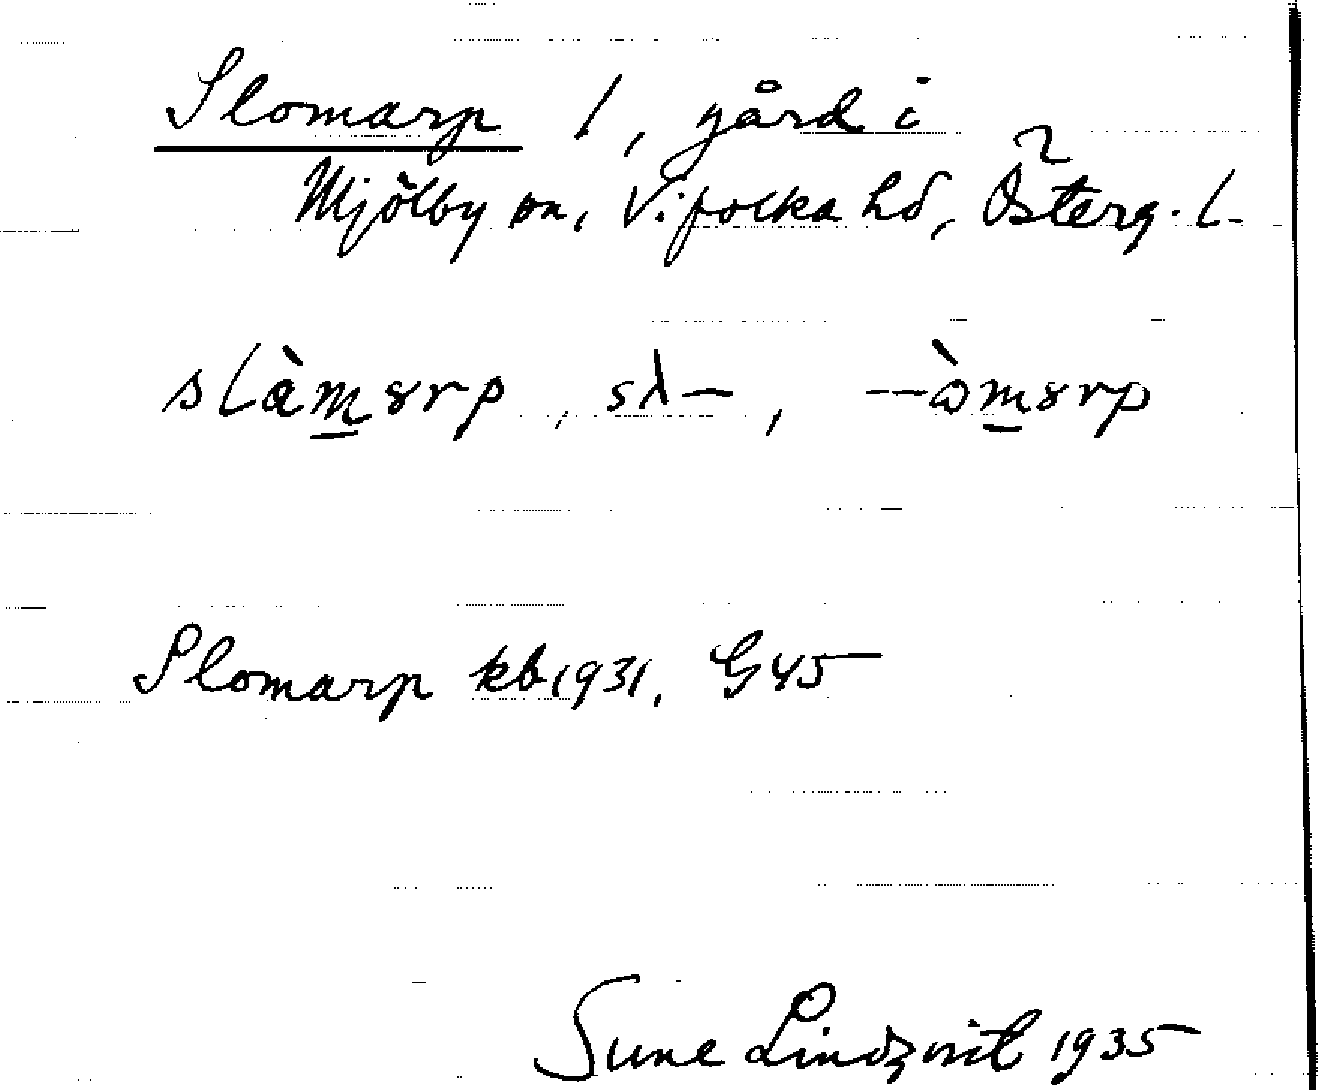 Slomarp 1, gård i
Mjölby sn, Vifolka hd, Österg. l.
slàmsrp, sλ–, –òmsrp
Slomarp kb 1931, G45
Sune Lindqvist 1935